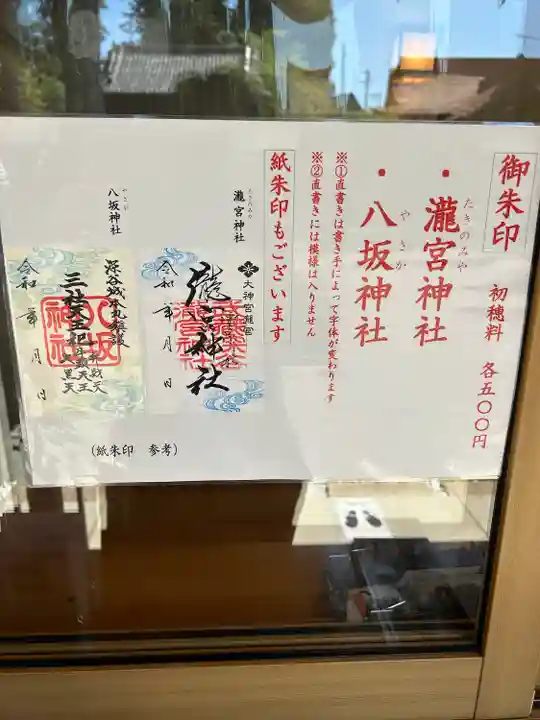 御朱印
初穂料 各五〇〇円
・瀧宮神社
たきのみや
・八坂神社
やさか
※①直書きは書き手によって字体が変わります
※②直書きには模様は入りません
紙朱印もございます
瀧宮神社
たきのみや
大神宮瀧宮
瀧宮神社
令和 年 月 日
八坂神社
やさか
深谷城本丸鎮護
三祓天王記
令和 年 月 日
(紙朱印 参考)